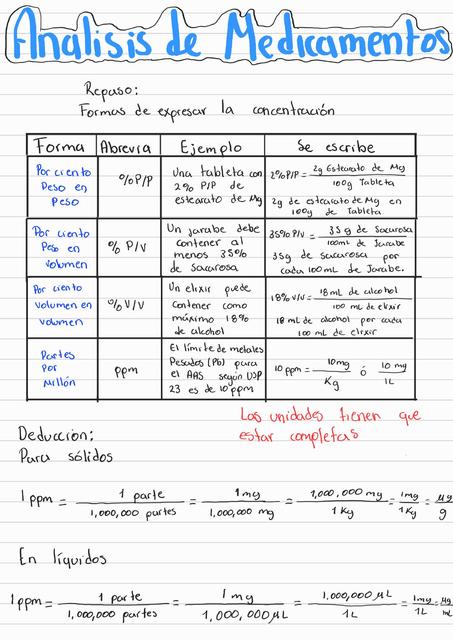 Analisis de Medicamentos
Repaso:
Formas de expresar la concentración
Forma Abrevia Ejemplo Se escribe
Por ciento
Peso en
Peso
%P/P
Una tableta con
2% P/P de
estearato de Mg
2%P/P = 2g Estearato de Mg / 100g Tableta
2g de estearato de Mg en
100g de Tableta
Por ciento
Peso en
volumen
% P/V
Un jarabe debe
contener al
menos 35%
de sacarosa
35% P/V = 35g de Sacarosa / 100mL de Jarabe
35g de sacarosa por
cada 100 mL de Jarabe.
Por ciento
volumen en
volumen
%V/V
Un elixir puede
contener como
máximo 18%
de alcohol
18% V/V = 18mL de alcohol / 100 mL de elixir
18 mL de alcohol por cada
100 mL de elixir
Partes
Por
Millón
ppm
El límite de metales
Pesados (Pb) para
el AAS según USP
23 es de 10 ppm
10 ppm = 10mg / Kg ó 10 mg / 1L
Las unidades tienen que
estar completas
Deducción:
Para sólidos
1 ppm = 1 parte / 1,000,000 partes = 1mg / 1,000,000 mg = 1,000,000 mg / 1 Kg = 1mg / 1Kg = µg / g
En líquidos
1ppm = 1 parte / 1,000,000 partes = 1mg / 1,000,000µL = 1,000,000 µL / 1L = 1mg / 1L = µg / mL